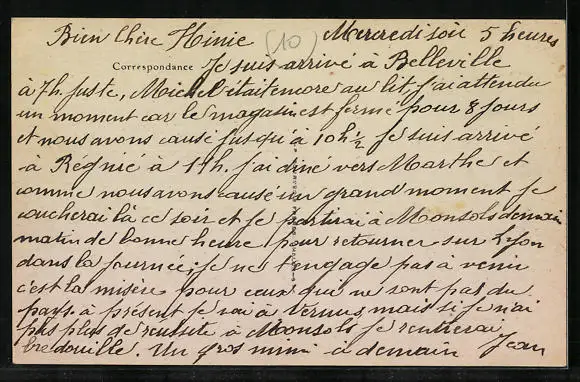 Bien Chère Ninie (10) Mercredi soir 5 heures
Correspondance Je suis arrivé à Belleville
à 7h. juste, Michel était encore au lit, j'ai attendu
un moment car le magasin est fermé pour 8 jours
et nous avons causé jusqu'à 10h ½ je suis arrivé
à Regnié à 11h. j'ai diné vers Marthe et
comme nous avons causé un grand moment je
coucherai là ce soir et je partirai à Monsols demain
matin de bonne heure pour retourner sur Lyon
dans la journée; je ne t'engage pas à venir
c'est la misère pour ceux qui ne sont pas du
pays. à présent je vai à Vernus mais si je n'ai
pas plus de reussite à Monsols je rentrerai
bredouille. Un gros mimi à demain Jean